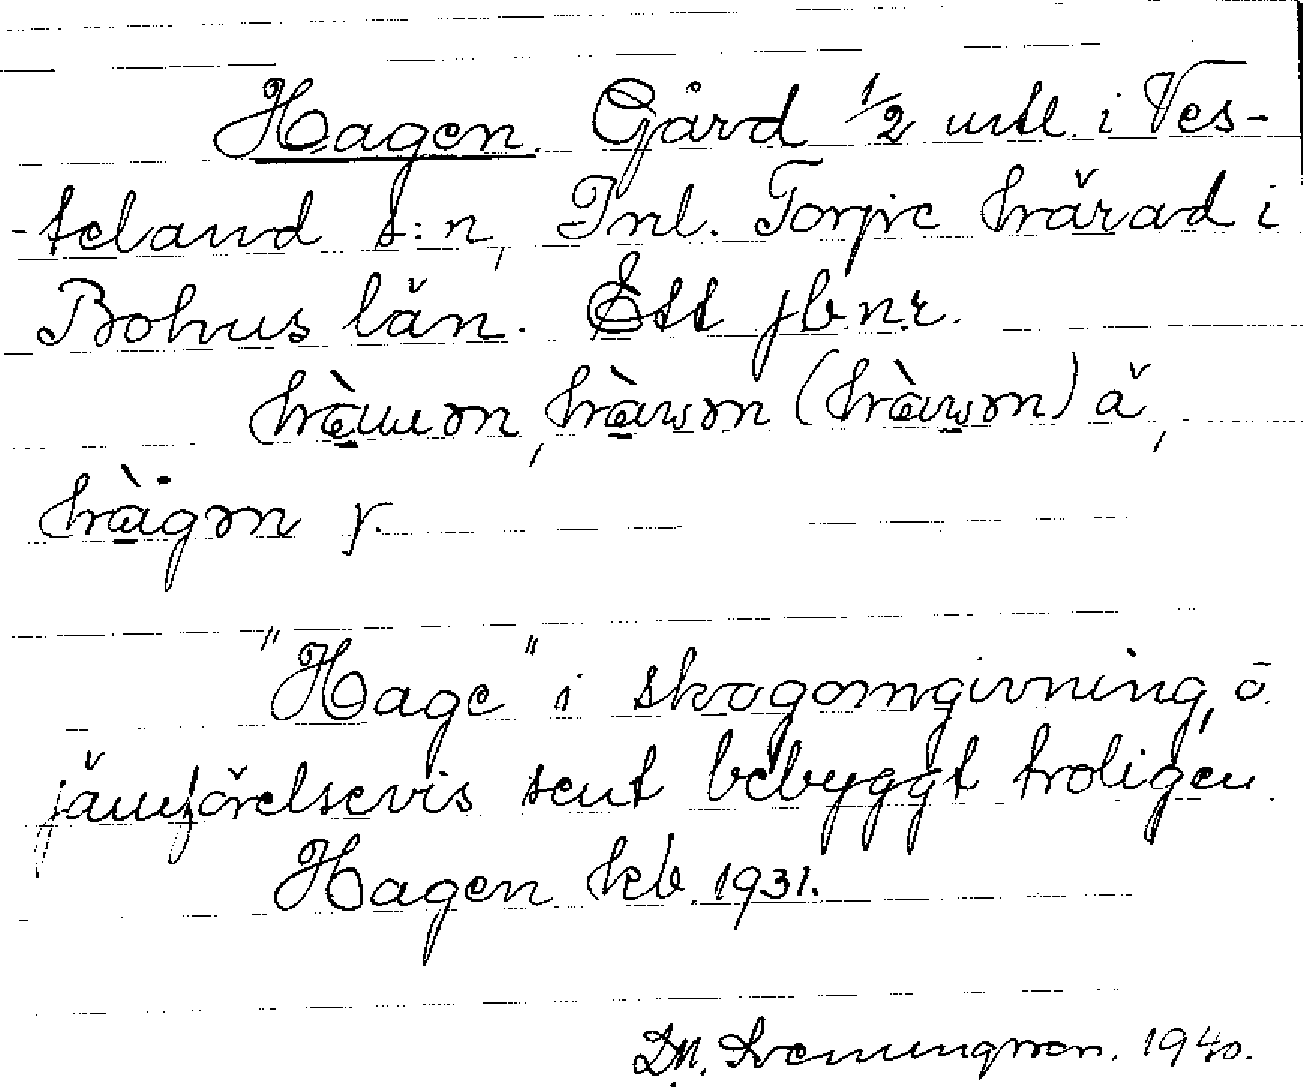 Hagen. Gård 1/2 mtl. i Ves-
-teland s:n, Inl. Torpe härad i
Bohus län. Ett jb.nr.
ä,
y.
"Hage" i skogomgivning, ö.
jämförelsevis sent bebyggt troligen
Hagen kb. 1931.
D.N. Svenningson. 1940.